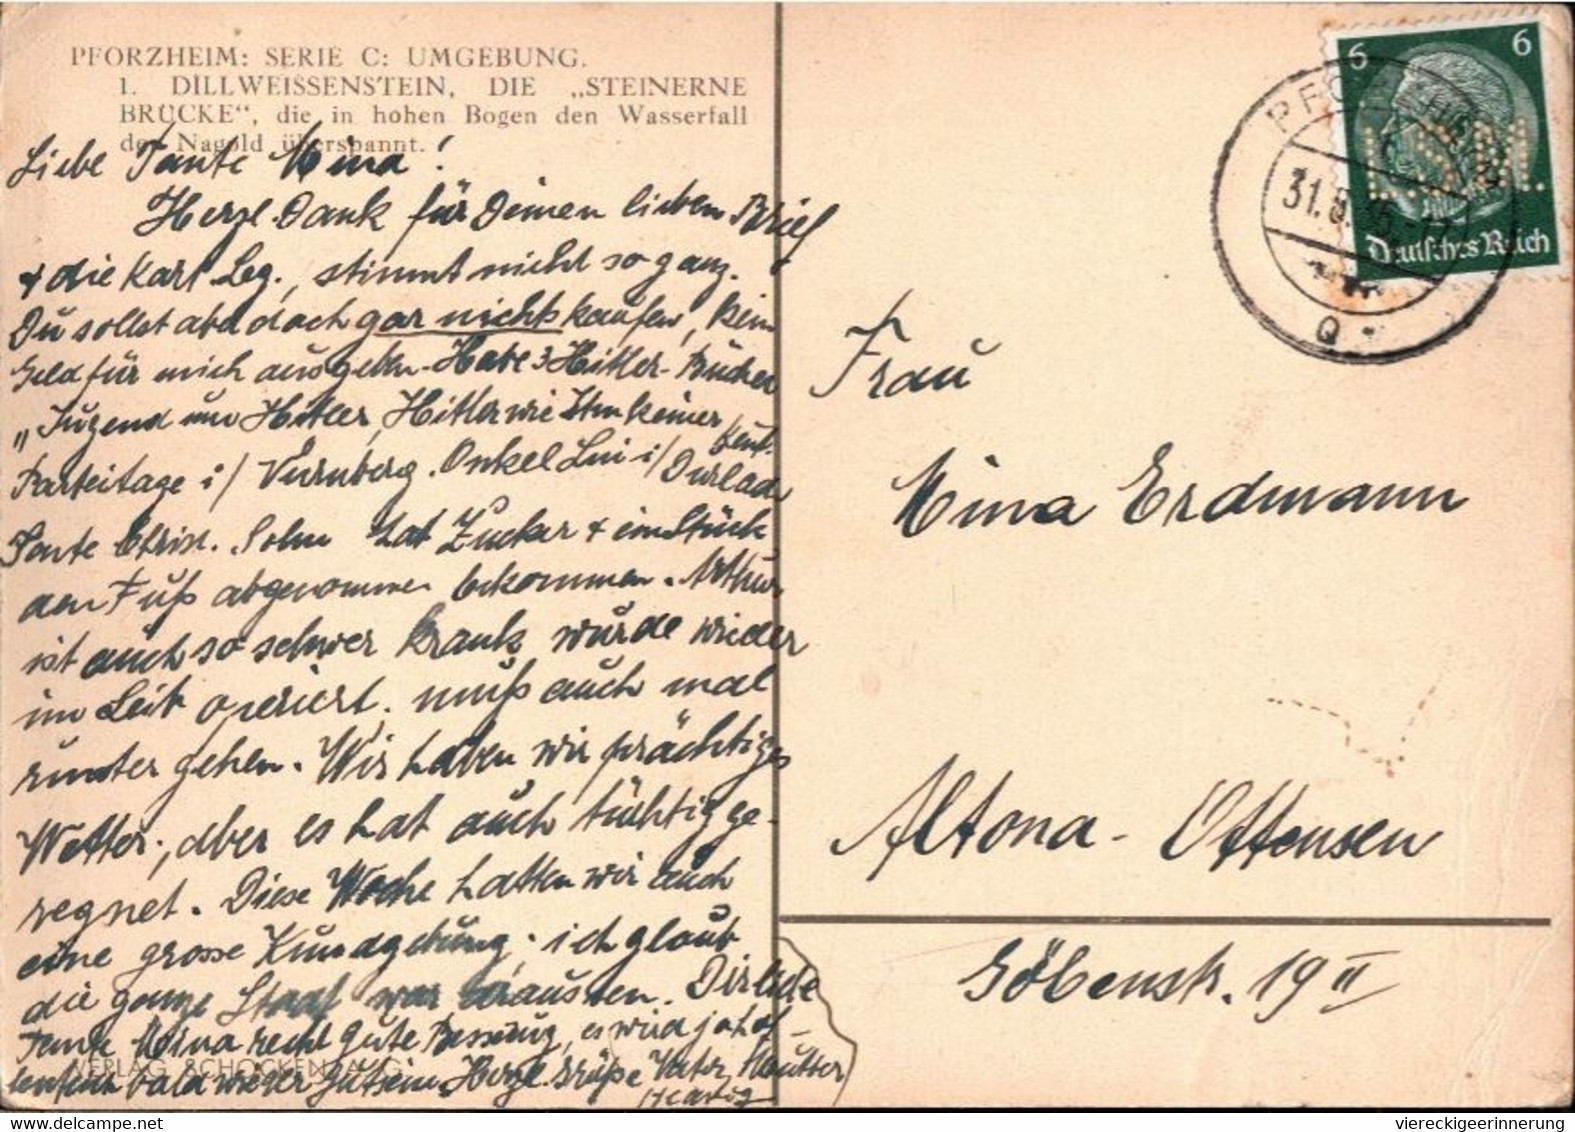 PFORZHEIM: SERIE C: UMGEBUNG.
1. DILLWEISSENSTEIN, DIE „STEINERNE
BRÜCKE“, die in hohen Bogen den Wasserfall
der Nagold überspannt.
Liebe Tante Mina!
Herzl. Dank für Deinen lieben Brief
+ die Kart. Leg., stimmt nicht so ganz.
Du sollst aba doch gar nichts kaufen, kein
Geld für mich ausgeben. Habe 3 Hitler-Bücher
„Jugend um Hitler, Hitler wie Ihn keiner kennt.
Parteitage i/ Nürnberg. Onkel i/ Durlach
Tante Christ. Sohn hat Zucker + ein Stück
den Fuß abgenommen bekommen. Arthur
ist auch so schwer krank, wurde wieder
im Leib operiert. muß auch mal
runter gehen. Wir haben wir prächtiges
Wetter, aber es hat auch tüchtig ge-
regnet. Diese Woche hatten wir auch
eine grosse Kundgebung, ich glaub
die ganze Stadt war draussen. Dir liebe
Tante Mina recht gute Besserung, es wird ja hof-
fentlich bald wieder gut sein. Herzl. Grüße Vater, Mutter
Hedwig
VERLAG SCHOCKEN A.G.
6 6
Deutsches Reich
PFORZHEIM
31.8.
Frau
Mina Erdmann
Altona-Ottensen
Göbenstr. 19 II
viereckigeerinnerung